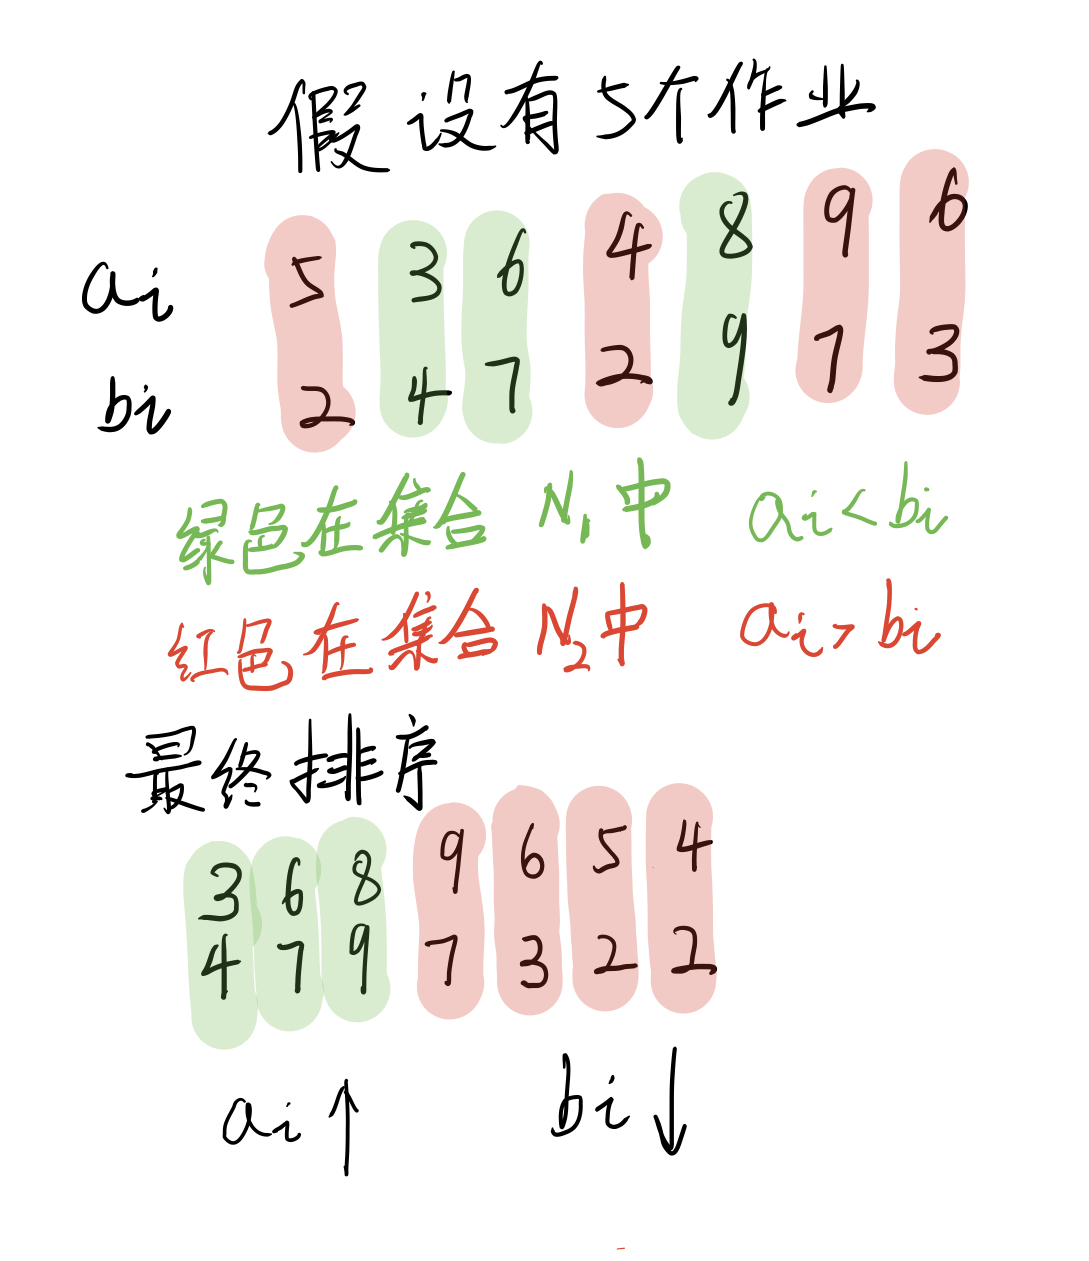 假设有5个作业
ai 5 3 6 4 8 9 6
bi 2 4 7 2 9 7 3
绿色在集合 N₁中 ai<bi
红色在集合 N₂中 ai>bi
最终排序
3 6 8 9 6 5 4
4 7 9 7 3 2 2
ai↑ bi↓